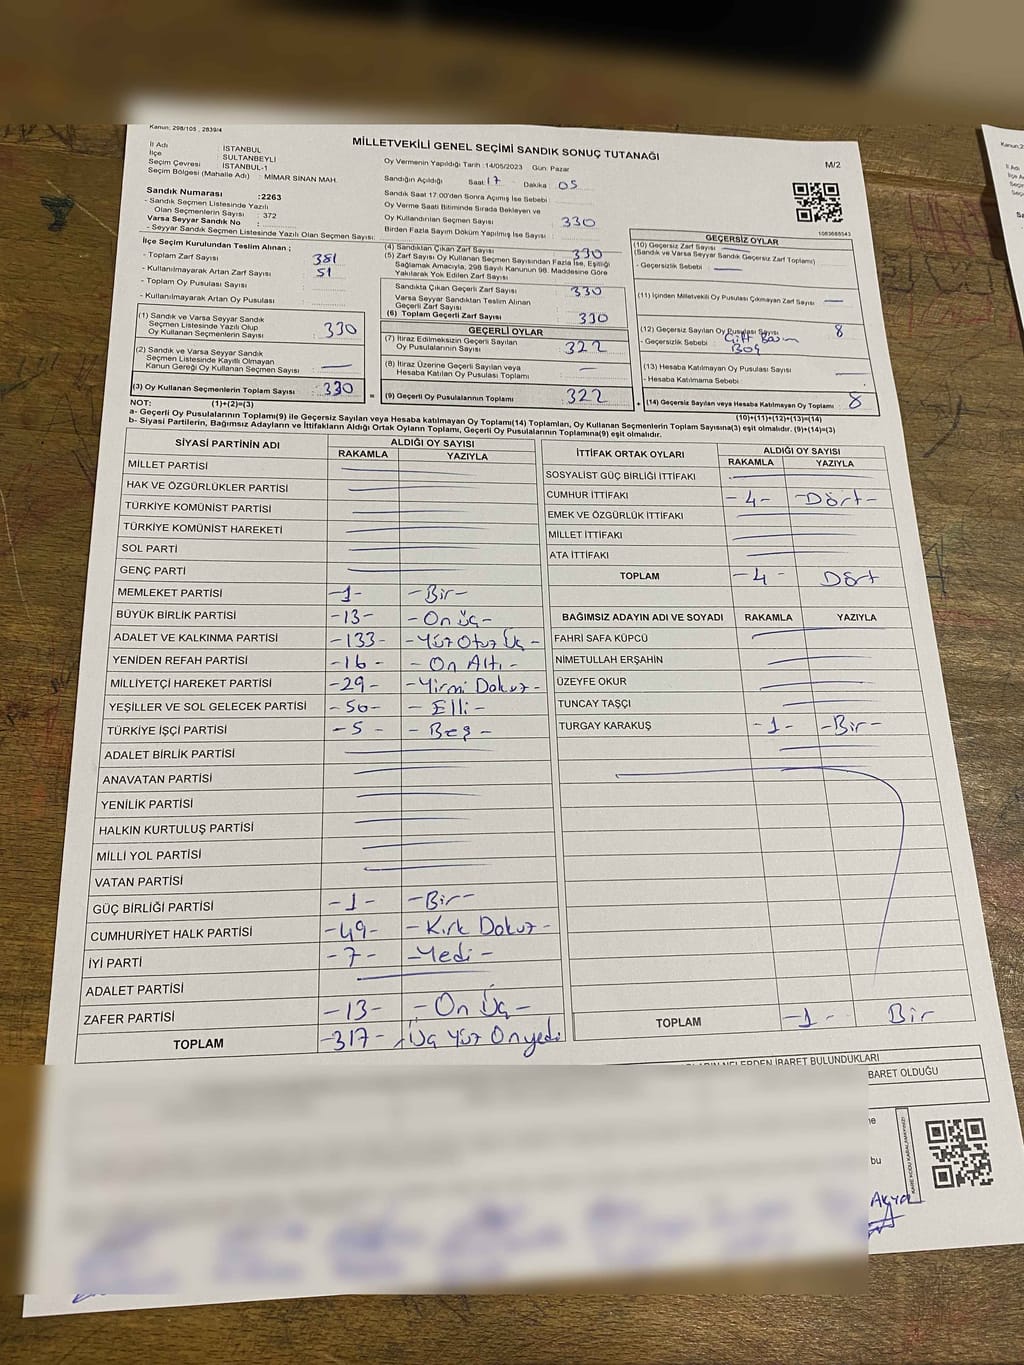 Kanun: 298/105 , 2839/4
MİLLETVEKİLİ GENEL SEÇİMİ SANDIK SONUÇ TUTANAĞI
M/2
İl Adı : İSTANBUL
İlçe : SULTANBEYLİ
Seçim Çevresi : İSTANBUL-1
Seçim Bölgesi (Mahalle Adı) : MİMAR SİNAN MAH.
Sandık Numarası :2263
- Sandık Seçmen Listesinde Yazılı
Olan Seçmenlerin Sayısı : 372
Varsa Seyyar Sandık No :
- Seyyar Sandık Seçmen Listesinde Yazılı Olan Seçmen Sayısı:
İlçe Seçim Kurulundan Teslim Alınan ;
- Toplam Zarf Sayısı : 381
- Kullanılmayarak Artan Zarf Sayısı : 51
- Toplam Oy Pusulası Sayısı :
- Kullanılmayarak Artan Oy Pusulası :
Oy Vermenin Yapıldığı Tarih :14/05/2023 Gün: Pazar
Sandığın Açıldığı Saat 17 Dakika 05
Sandık Saat 17:00'den Sonra Açımış İse Sebebi :
Oy Verme Saati Bitiminde Sırada Bekleyen ve
Oy Kullandırılan Seçmen Sayısı : 330
Birden Fazla Sayım Döküm Yapılmış İse Sayısı :
1083688543
(1) Sandık ve Varsa Seyyar Sandık
Seçmen Listesinde Yazılı Olup
Oy Kullanan Seçmenlerin Sayısı : 330
(2) Sandık ve Varsa Seyyar Sandık
Seçmen Listesinde Kayıtlı Olmayan
Kanun Gereği Oy Kullanan Seçmen Sayısı :
(3) Oy Kullanan Seçmenlerin Toplam Sayısı : 330
(4) Sandıktan Çıkan Zarf Sayısı : 330
(5) Zarf Sayısı Oy Kullanan Seçmen Sayısından Fazla İse, Eşitliği
Sağlamak Amacıyla, 298 Sayılı Kanunun 98. Maddesine Göre
Yakılarak Yok Edilen Zarf Sayısı :
Sandıkta Çıkan Geçerli Zarf Sayısı : 330
Varsa Seyyar Sandıktan Teslim Alınan
Geçerli Zarf Sayısı :
(6) Toplam Geçerli Zarf Sayısı : 330
GEÇERLİ OYLAR
(7) İtiraz Edilmeksizin Geçerli Sayılan
Oy Pusulalarının Sayısı : 322
(8) İtiraz Üzerine Geçerli Sayılan veya
Hesaba Katılan Oy Pusulası Toplamı :
= (9) Geçerli Oy Pusulalarının Toplamı : 322
GEÇERSİZ OYLAR
(10) Geçersiz Zarf Sayısı :
(Sandık ve Varsa Seyyar Sandık Geçersiz Zarf Toplamı)
- Geçersizlik Sebebi :
(11) İçinden Milletvekili Oy Pusulası Çıkmayan Zarf Sayısı :
(12) Geçersiz Sayılan Oy Pusulası Sayısı : 8
- Geçersizlik Sebebi : Çift Basım
Boş
(13) Hesaba Katılmayan Oy Pusulası Sayısı :
- Hesaba Katılmama Sebebi :
+ (14) Geçersiz Sayılan veya Hesaba Katılmayan Oy Toplamı : 8
NOT: (1)+(2)=(3)
(10)+(11)+(12)+(13)=(14)
a- Geçerli Oy Pusulalarının Toplamı(9) ile Geçersiz Sayılan veya Hesaba katılmayan Oy Toplamı(14) Toplamları, Oy Kullanan Seçmenlerin Toplam Sayısına(3) eşit olmalıdır. (9)+(14)=(3)
b- Siyasi Partilerin, Bağımsız Adayların ve İttifakların Aldığı Ortak Oyların Toplamı, Geçerli Oy Pusulalarının Toplamına(9) eşit olmalıdır.
SİYASİ PARTİNİN ADI ALDIĞI OY SAYISI
RAKAMLA YAZIYLA
MİLLET PARTİSİ
HAK VE ÖZGÜRLÜKLER PARTİSİ
TÜRKİYE KOMÜNİST PARTİSİ
TÜRKİYE KOMÜNİST HAREKETİ
SOL PARTİ
GENÇ PARTİ
MEMLEKET PARTİSİ -1- -Bir-
BÜYÜK BİRLİK PARTİSİ -13- -On Üç-
ADALET VE KALKINMA PARTİSİ -133- -Yüz Otuz Üç-
YENİDEN REFAH PARTİSİ -16- -On Altı-
MİLLİYETÇİ HAREKET PARTİSİ -29- -Yirmi Dokuz-
YEŞİLLER VE SOL GELECEK PARTİSİ -50- -Elli-
TÜRKİYE İŞÇİ PARTİSİ -5- -Beş-
ADALET BİRLİK PARTİSİ
ANAVATAN PARTİSİ
YENİLİK PARTİSİ
HALKIN KURTULUŞ PARTİSİ
MİLLİ YOL PARTİSİ
VATAN PARTİSİ
GÜÇ BİRLİĞİ PARTİSİ -1- -Bir-
CUMHURİYET HALK PARTİSİ -49- -Kırk Dokuz-
İYİ PARTİ -7- -Yedi-
ADALET PARTİSİ
ZAFER PARTİSİ -13- -On Üç-
TOPLAM -317- -Üç Yüz Onyedi
İTTİFAK ORTAK OYLARI ALDIĞI OY SAYISI
RAKAMLA YAZIYLA
SOSYALİST GÜÇ BİRLİĞİ İTTİFAKI
CUMHUR İTTİFAKI -4- -Dört-
EMEK VE ÖZGÜRLÜK İTTİFAKI
MİLLET İTTİFAKI
ATA İTTİFAKI
TOPLAM -4- Dört
BAĞIMSIZ ADAYIN ADI VE SOYADI RAKAMLA YAZIYLA
FAHRİ SAFA KÜPCÜ
NİMETULLAH ERŞAHİN
ÜZEYFE OKUR
TUNCAY TAŞÇI
TURGAY KARAKUŞ -1- -Bir-
TOPLAM -1- Bir
NELERDEN İBARET BULUNDUKLARI
BARET OLDUĞU
bu